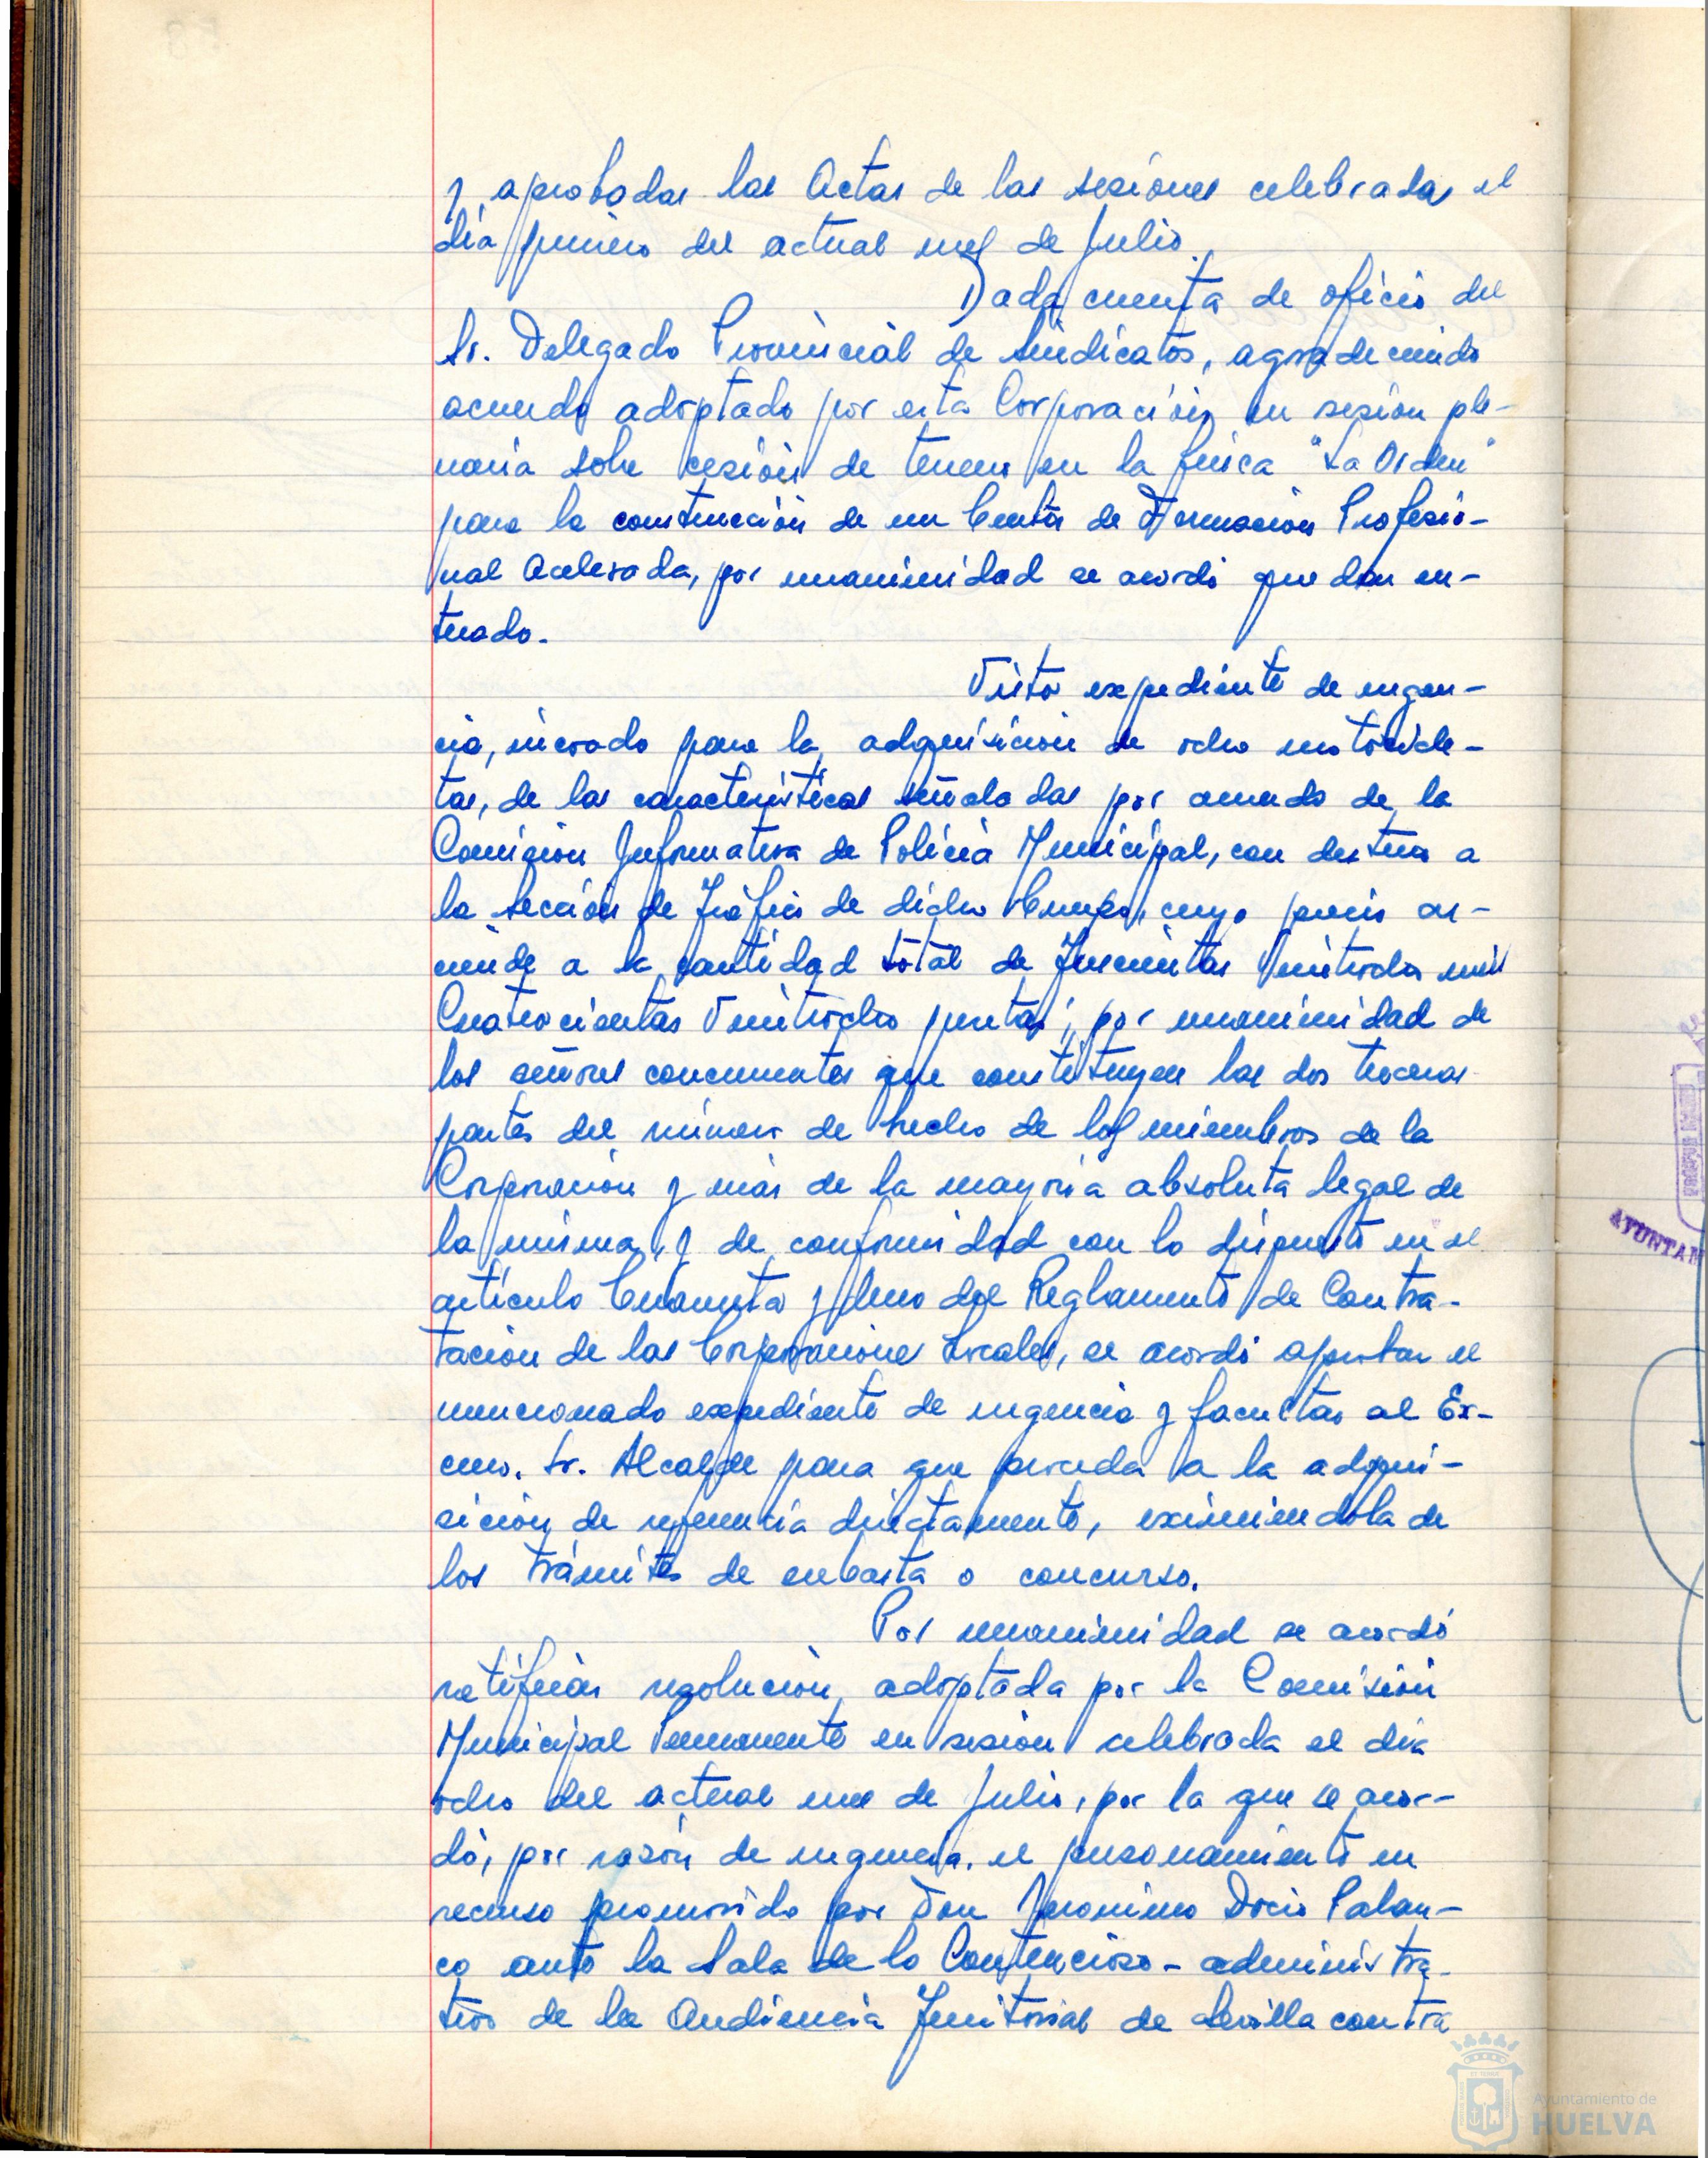 y aprobadas las Actas de las sesiones celebradas el
día primero del actual mes de Julio.
Dada cuenta de oficio del
Sr. Delegado Provincial de Sindicatos, agradeciendo
acuerdo adoptado por esta Corporación en sesión ple-
naria sobre cesión de terreno en la finca "La Orden"
para la construcción de un Centro de Formación Profesio-
nal Acelerada, por unanimidad se acordó quedar en-
terado.
Visto expediente de urgen-
cia, incoado para la adquisición de ocho motocicle-
tas, de las características señaladas por acuerdo de la
Comisión Informativa de Policía Municipal, con destino a
la Sección de Tráfico de dicho Cuerpo, cuyo precio as-
ciende a la cantidad total de Trescientas Veintiocho mil
Cuatrocientas Veintiocho pesetas; por unanimidad de
los señores concurrentes que constituyen las dos terceras
partes del número de hecho de los miembros de la
Corporación y más de la mayoría absoluta legal de
la misma, y de conformidad con lo dispuesto en el
artículo Cuarenta y Uno del Reglamento de Contra-
tación de las Corporaciones Locales, se acordó aprobar el
mencionado expediente de urgencia y facultar al Ex-
cmo. Sr. Alcalde para que proceda a la adqui-
sición de referencia directamente, eximiendola de
los trámites de subasta o concurso.
Por unanimidad se acordó
ratificar resolución adoptada por la Comisión
Municipal Permanente en sesión celebrada el día
ocho del actual mes de Julio, por la que se acor-
dó, por razón de urgencia, el personamiento en
recurso promovido por Don Jeronimo Palan-
co ante la Sala de lo Contencioso-administra-
tivo de la Audiencia Territorial de Sevilla contra
AYUNTAM
Ayuntamiento de
HUELVA